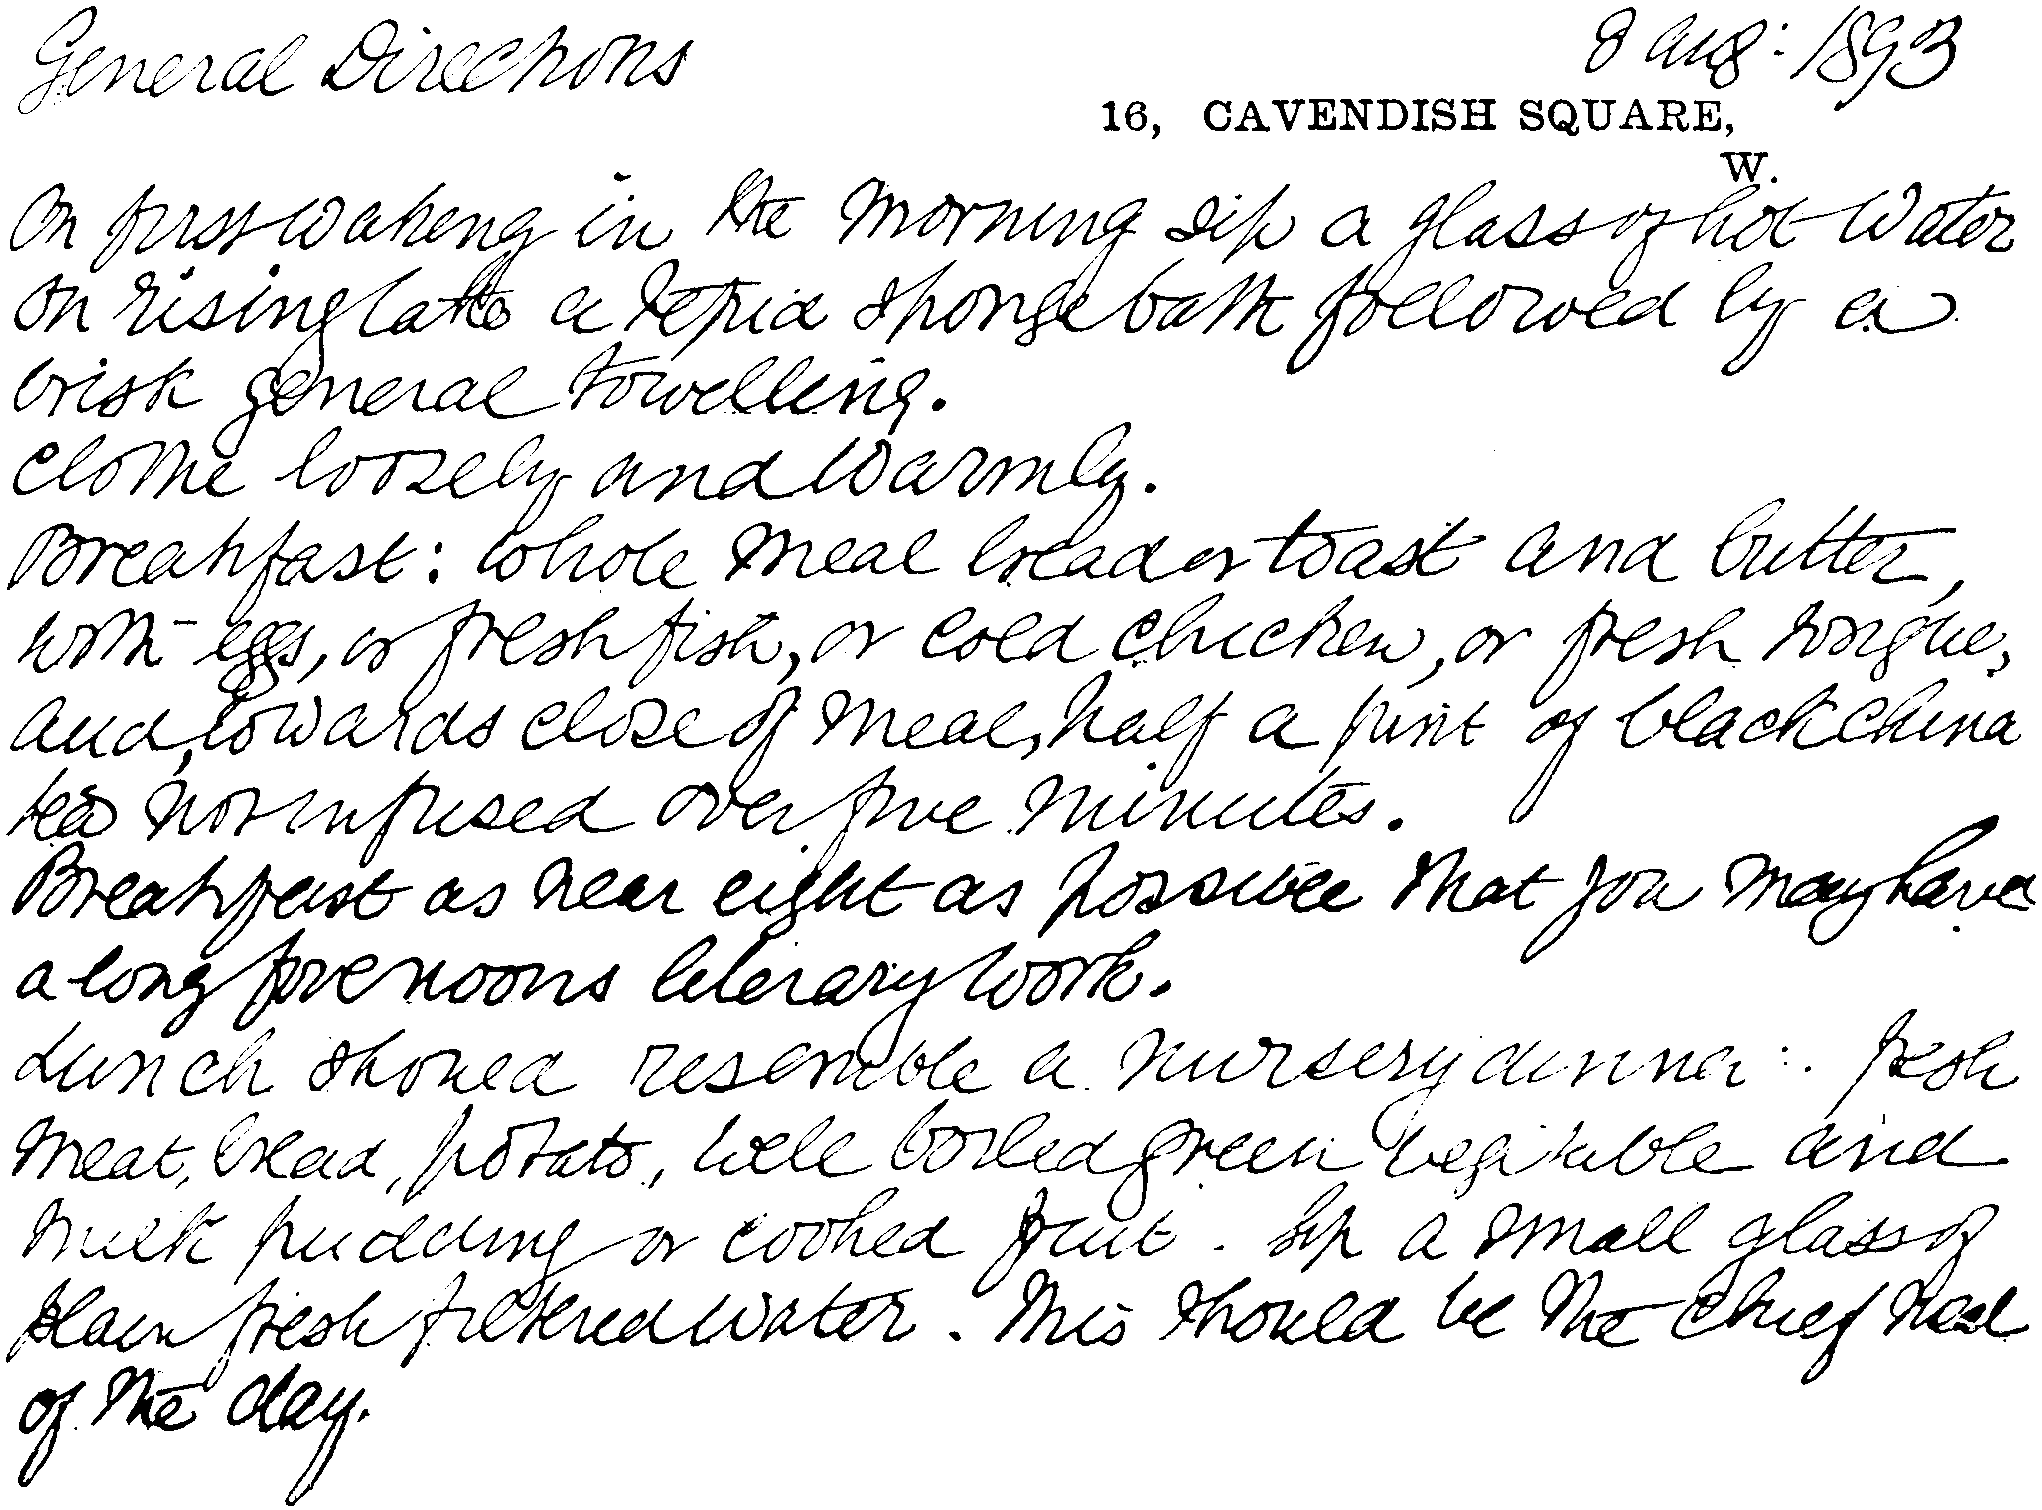 General Directions 8 Aug: 1893
16, CAVENDISH SQUARE,
W.
On first waking in the morning sip a glass of hot water
On rising take a tepid sponge bath followed by a
brisk general towelling.
Clothe loosely and warmly.
Breakfast: whole meal bread or toast and butter,
with eggs, or fresh fish, or cold chicken, or fresh tongue,
and, towards close of meal, half a pint of black China
tea not infused over five minutes.
Breakfast as near eight as possible that you may have
a long forenoons literary work.
Lunch should resemble a nursery dinner: fresh
meat, bread, potato, well boiled green vegitable and
milk pudding or cooked fruit. Sip a small glass of
plain fresh filtered water. This should be the chief meal
of the day.